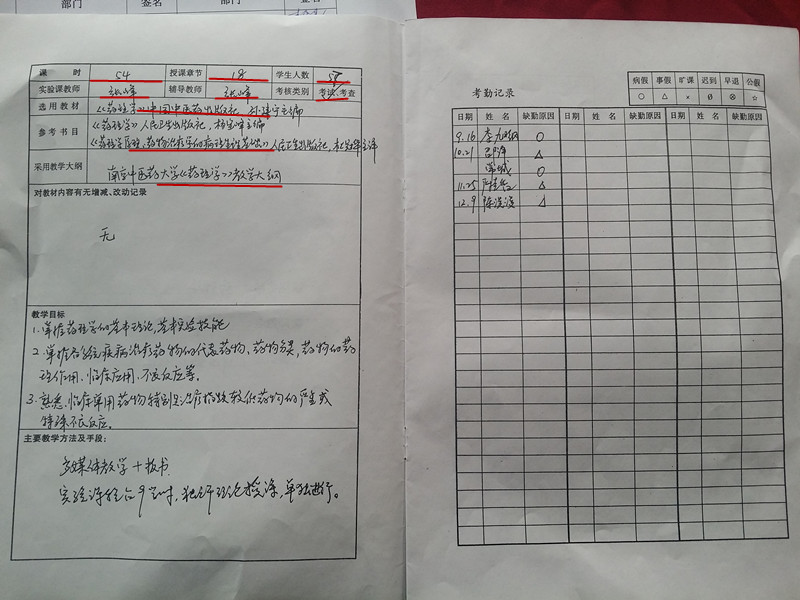 部门
签名
部门
签名
课 时 54 授课章节 18 学生人数 58
实验课教师 张峰 辅导教师 张峰 考核类别 考试、考查
选用教材 《药理学》中国中医药出版社，孙建宁主编
参考书目 《药理学》人民卫生出版社，杨宝峰主编
人民卫生出版社，
采用教学大纲 南京中医药大学《药理学》教学大纲
对教材内容有无增减、改动记录
无
教学目标
1.掌握药理学的基本理论，基本实验技能
2.掌握各系统疾病治疗药物的代表药物、药物分类，药物的药
理作用、临床应用、不良反应等。
3.熟悉临床常用药物特别是治疗指数较低药物的严重或
特殊不良反应。
主要教学方法及手段：
多媒体教学+板书
实验课结合，单独进行。
考勤记录
病假 事假 旷课 迟到 早退 公假
○ △ × Ø ⊗ ☆
日期 姓 名 缺勤原因 日期 姓 名 缺勤原因 日期 姓 名 缺勤原因
9.16 ○
10.21 △
○
11.25 △
12.9 △